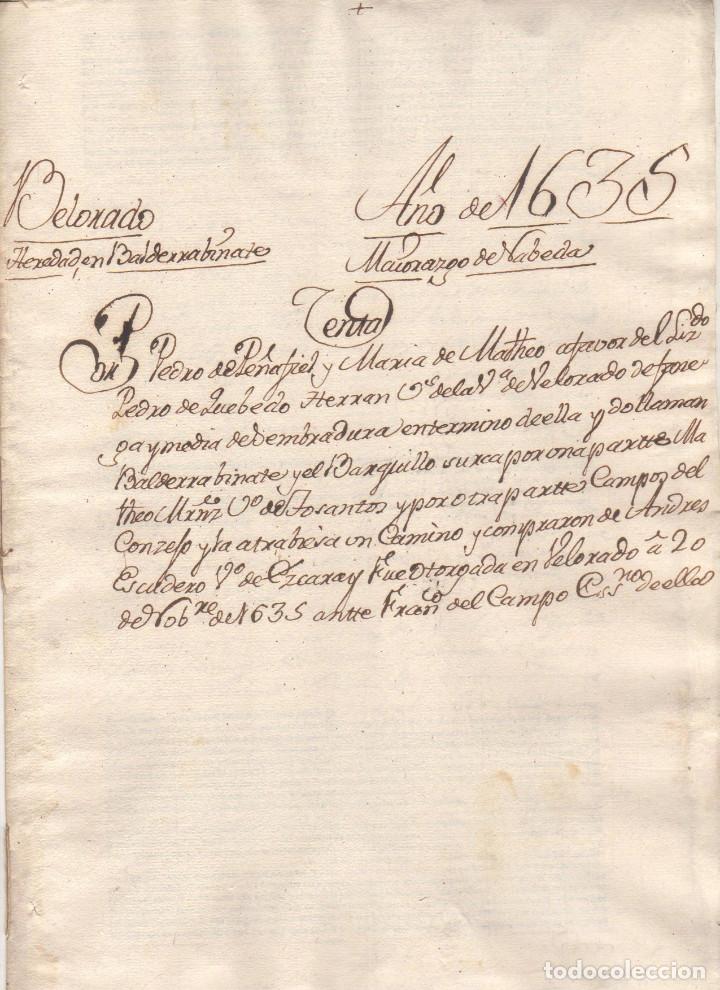 +
Belorado
Año de 1635
Heredad, en Balderrabinate
Maiorazgo de Nabeda
Venta
Por Pedro de Peñafiel y Maria de Matheo a favor del Lizdo
Pedro de Quebedo Herran Vº de la Vª de Velorado de fane
ga y media de Sembradura en termino de ella y do llaman
Balderrabinate y el Barquillo surca por una partte Ma
theo Mrñz Vº de Fosantos y por otra partte Campos del
Conzejo y la atrabiesa un Camino y compraron de Andres
Escudero Vº de Ezcaray Fue otorgada en Velorado â 20
de Nobre de 1635 antte Franco del Campo Essno de ella
todocoleccion